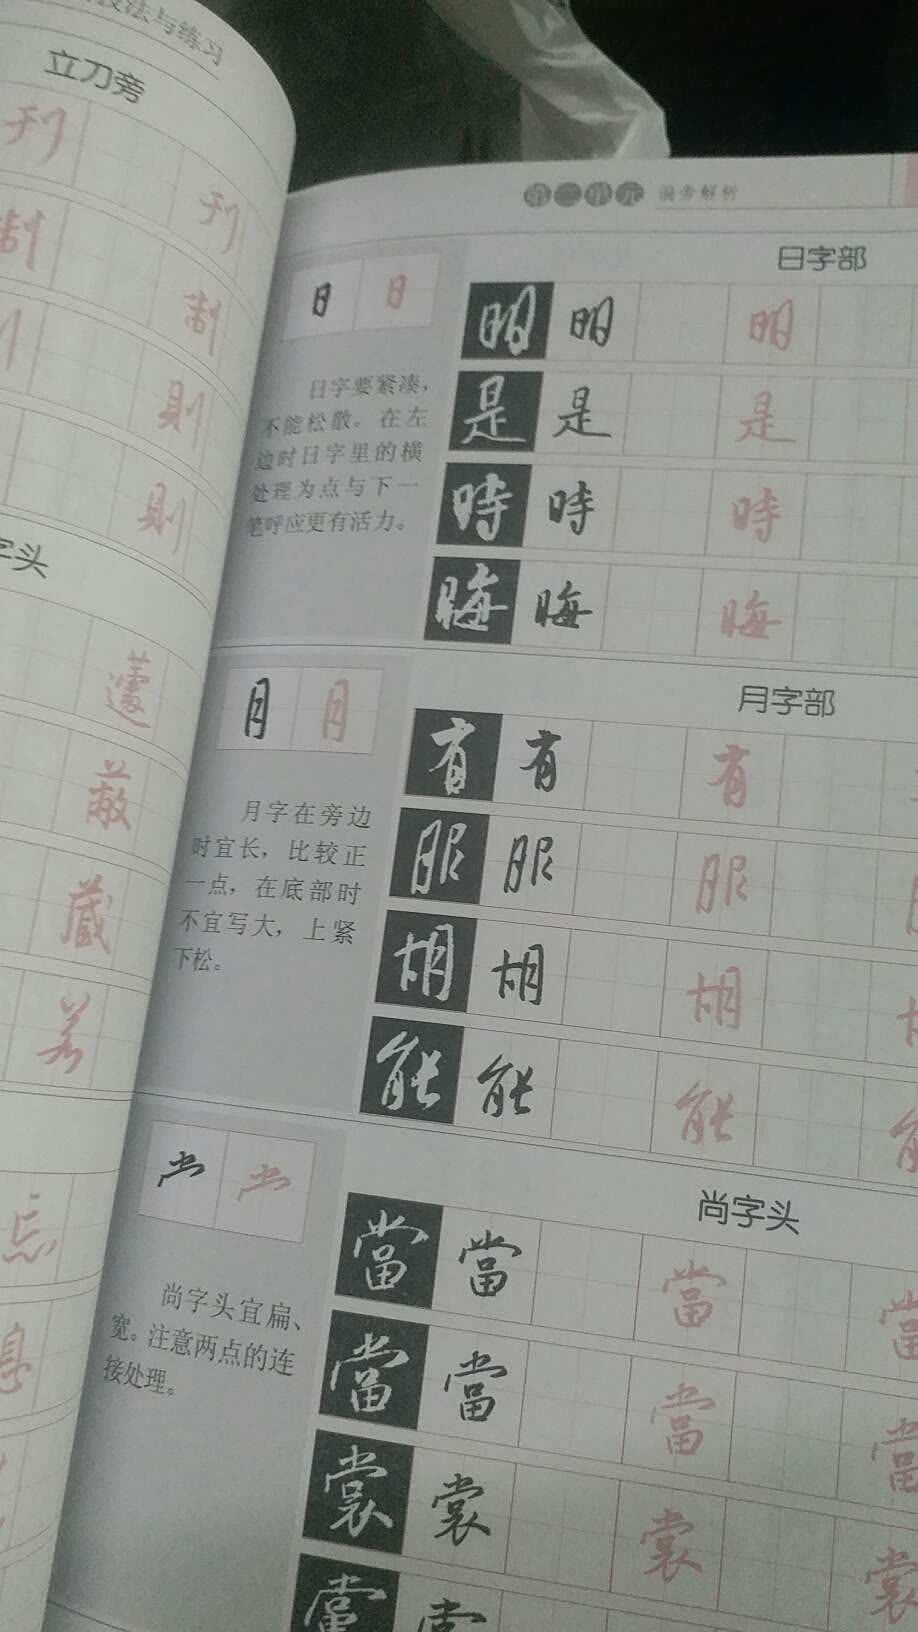 技法与练习
立刀旁
刊
刊
制
制
則
則
字头
蘧
蔽
蔵
若
忘
息
第二单元 偏旁解析
日 日
日字要紧凑，
不能松散。在左
边时日字里的横
处理为点与下一
笔呼应更有活力。
日字部
明 明 明
是 是 是
時 時 時
晦 晦 晦
月 月
月字在旁边
时宜长，比较正
一点，在底部时
不宜写大，上紧
下松。
月字部
有 有 有
服 服 服
胡 胡 胡
能 能 能 能
尚字头宜扁、
宽。注意两点的连
接处理。
尚字头
當 當 當 當
當 當 當 當
裳 裳 裳 裳